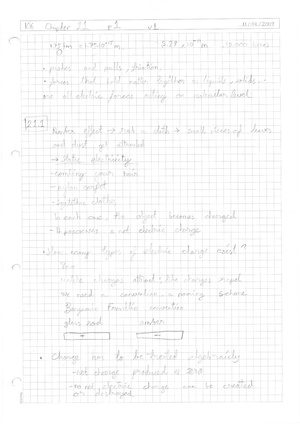 Chapter 21 p1 v1
• pushes and pulls, friction
• forces that hold matter together in liquids, solids
are all electric forces acting on molecular level
21.1
effect → rub a cloth → small pieces of leaves
and dust get attracted
→ static electricity
- combing your hair
- nylon carpet
- synthetic clothes
In each case, the object becomes charged
- It possesses a net electric charge
• How many types of electric charge exist?
Two
unlike charges attract, like charges repel
we need a convention, a naming scheme
Benjamin Franklin convention
glass rod amber
• Charge has to be treated algebraically
- net charge produced is zero
- no net electric charge can be created
or destroyed